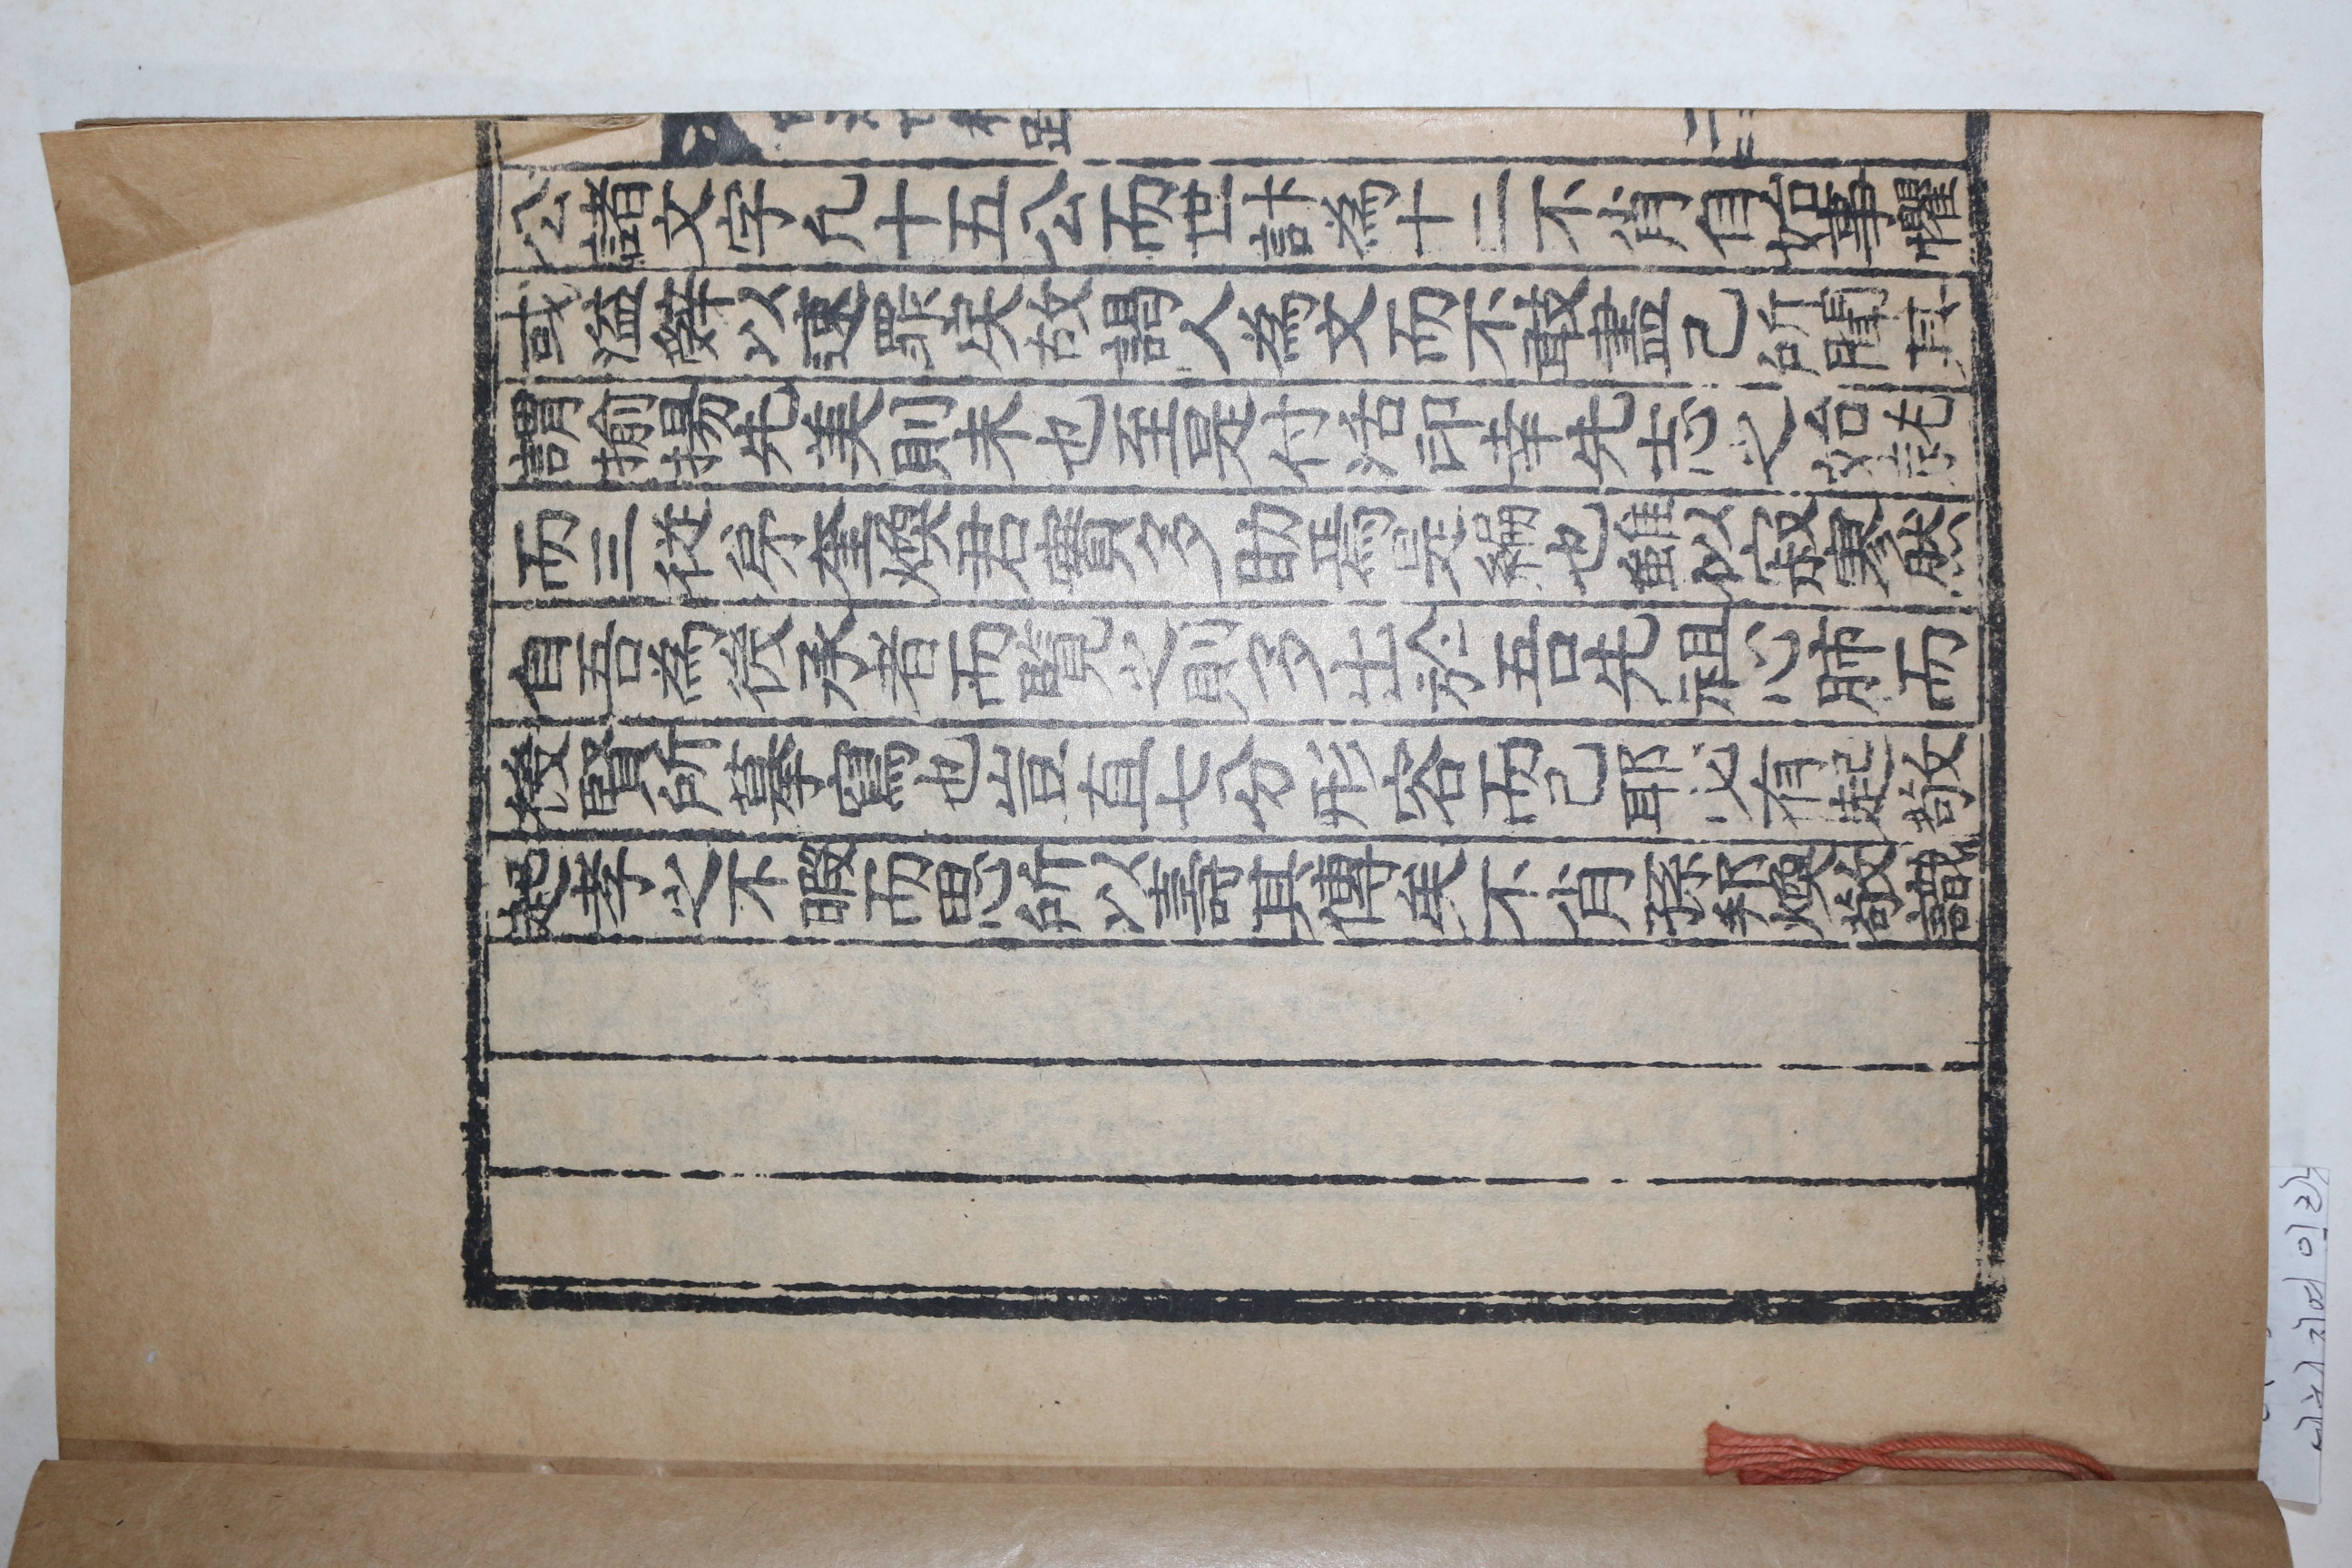 公諸文字凢十五公而世計為十二不肖自始事懼
或溢辭以速罪戾故謁人為文而不敢盡己所聞其
謂揄揚先美則未也至是付活印幸先志之始託
而三從弟奎煥君實多助焉是編也雖似寂寥然
自吾為後承者而覽之則多出於吾先祖心肺而
後賢所摹寫也豈直七分形容而已耶必有起敬
起孝之不暇而思所以壽其傳矣不肖孫邦煥敬識
二